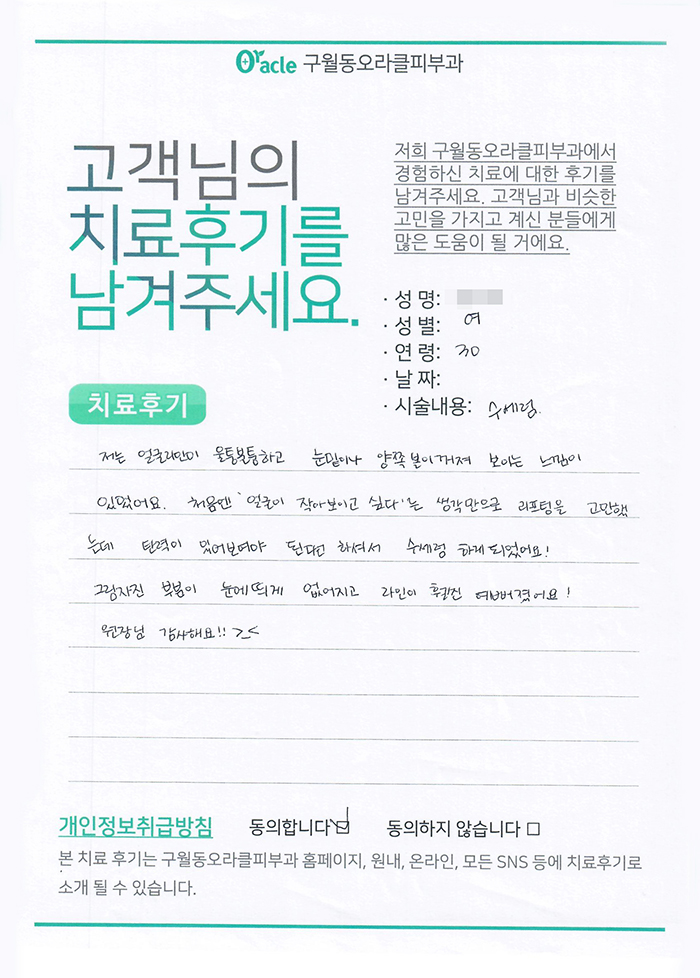 Oracle 구월동오라클피부과
고객님의
치료후기를
남겨주세요.
저희 구월동오라클피부과에서
경험하신 치료에 대한 후기를
남겨주세요. 고객님과 비슷한
고민을 가지고 계신 분들에게
많은 도움이 될 거에요.
· 성 명:
· 성 별: 여
· 연 령: 30
· 날 짜:
· 시술내용: 수세렁.
치료후기
저는 얼굴라인이 울퉁불퉁하고 눈밑이나 양쪽 볼이 꺼져 보이는 느낌이
있었어요. 처음엔 '얼굴이 작아보이고 싶다'는 생각만으로 리프팅을 고민했
는데 탄력이 있어보여야 된다고 하셔서 수세렁 하게되었어요!
그림자진 부분이 눈에띄게 없어지고 라인이 훨씬 예뻐졌어요!
원장님 감사해요!! >_<
개인정보취급방침 동의합니다 ☑ 동의하지 않습니다 □
본 치료 후기는 구월동오라클피부과 홈페이지, 원내, 온라인, 모든 SNS 등에 치료후기로
소개 될 수 있습니다.